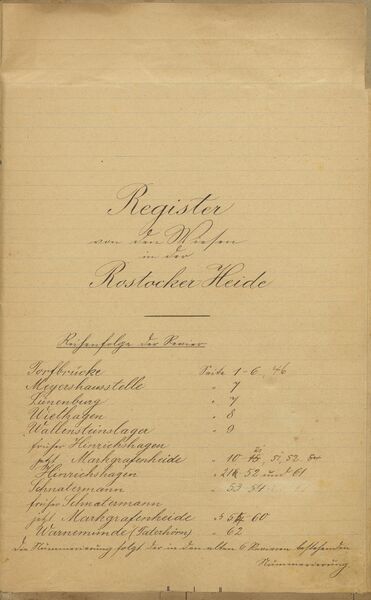 Register
von den Wiesen
in der
Rostocker Heide
Reihenfolge der Reviere
Torfbrücke Seite 1-6, 46
Meyershausstelle " 7
Jünenburg " 7
Wiethagen " 8
Wallensteinslager " 9
früher Hinrichshagen
jetzt Markgrafenheide " 10 51 52
Hinrichshagen " 52 und 61
Schnatermann " 53
früher Schnatermann
jetzt Markgrafenheide 60
Warnemünde (Taterhörn) " 62
Die Nummerierung folgt der in den alten 6 Revieren bestehenden
Nummerierung